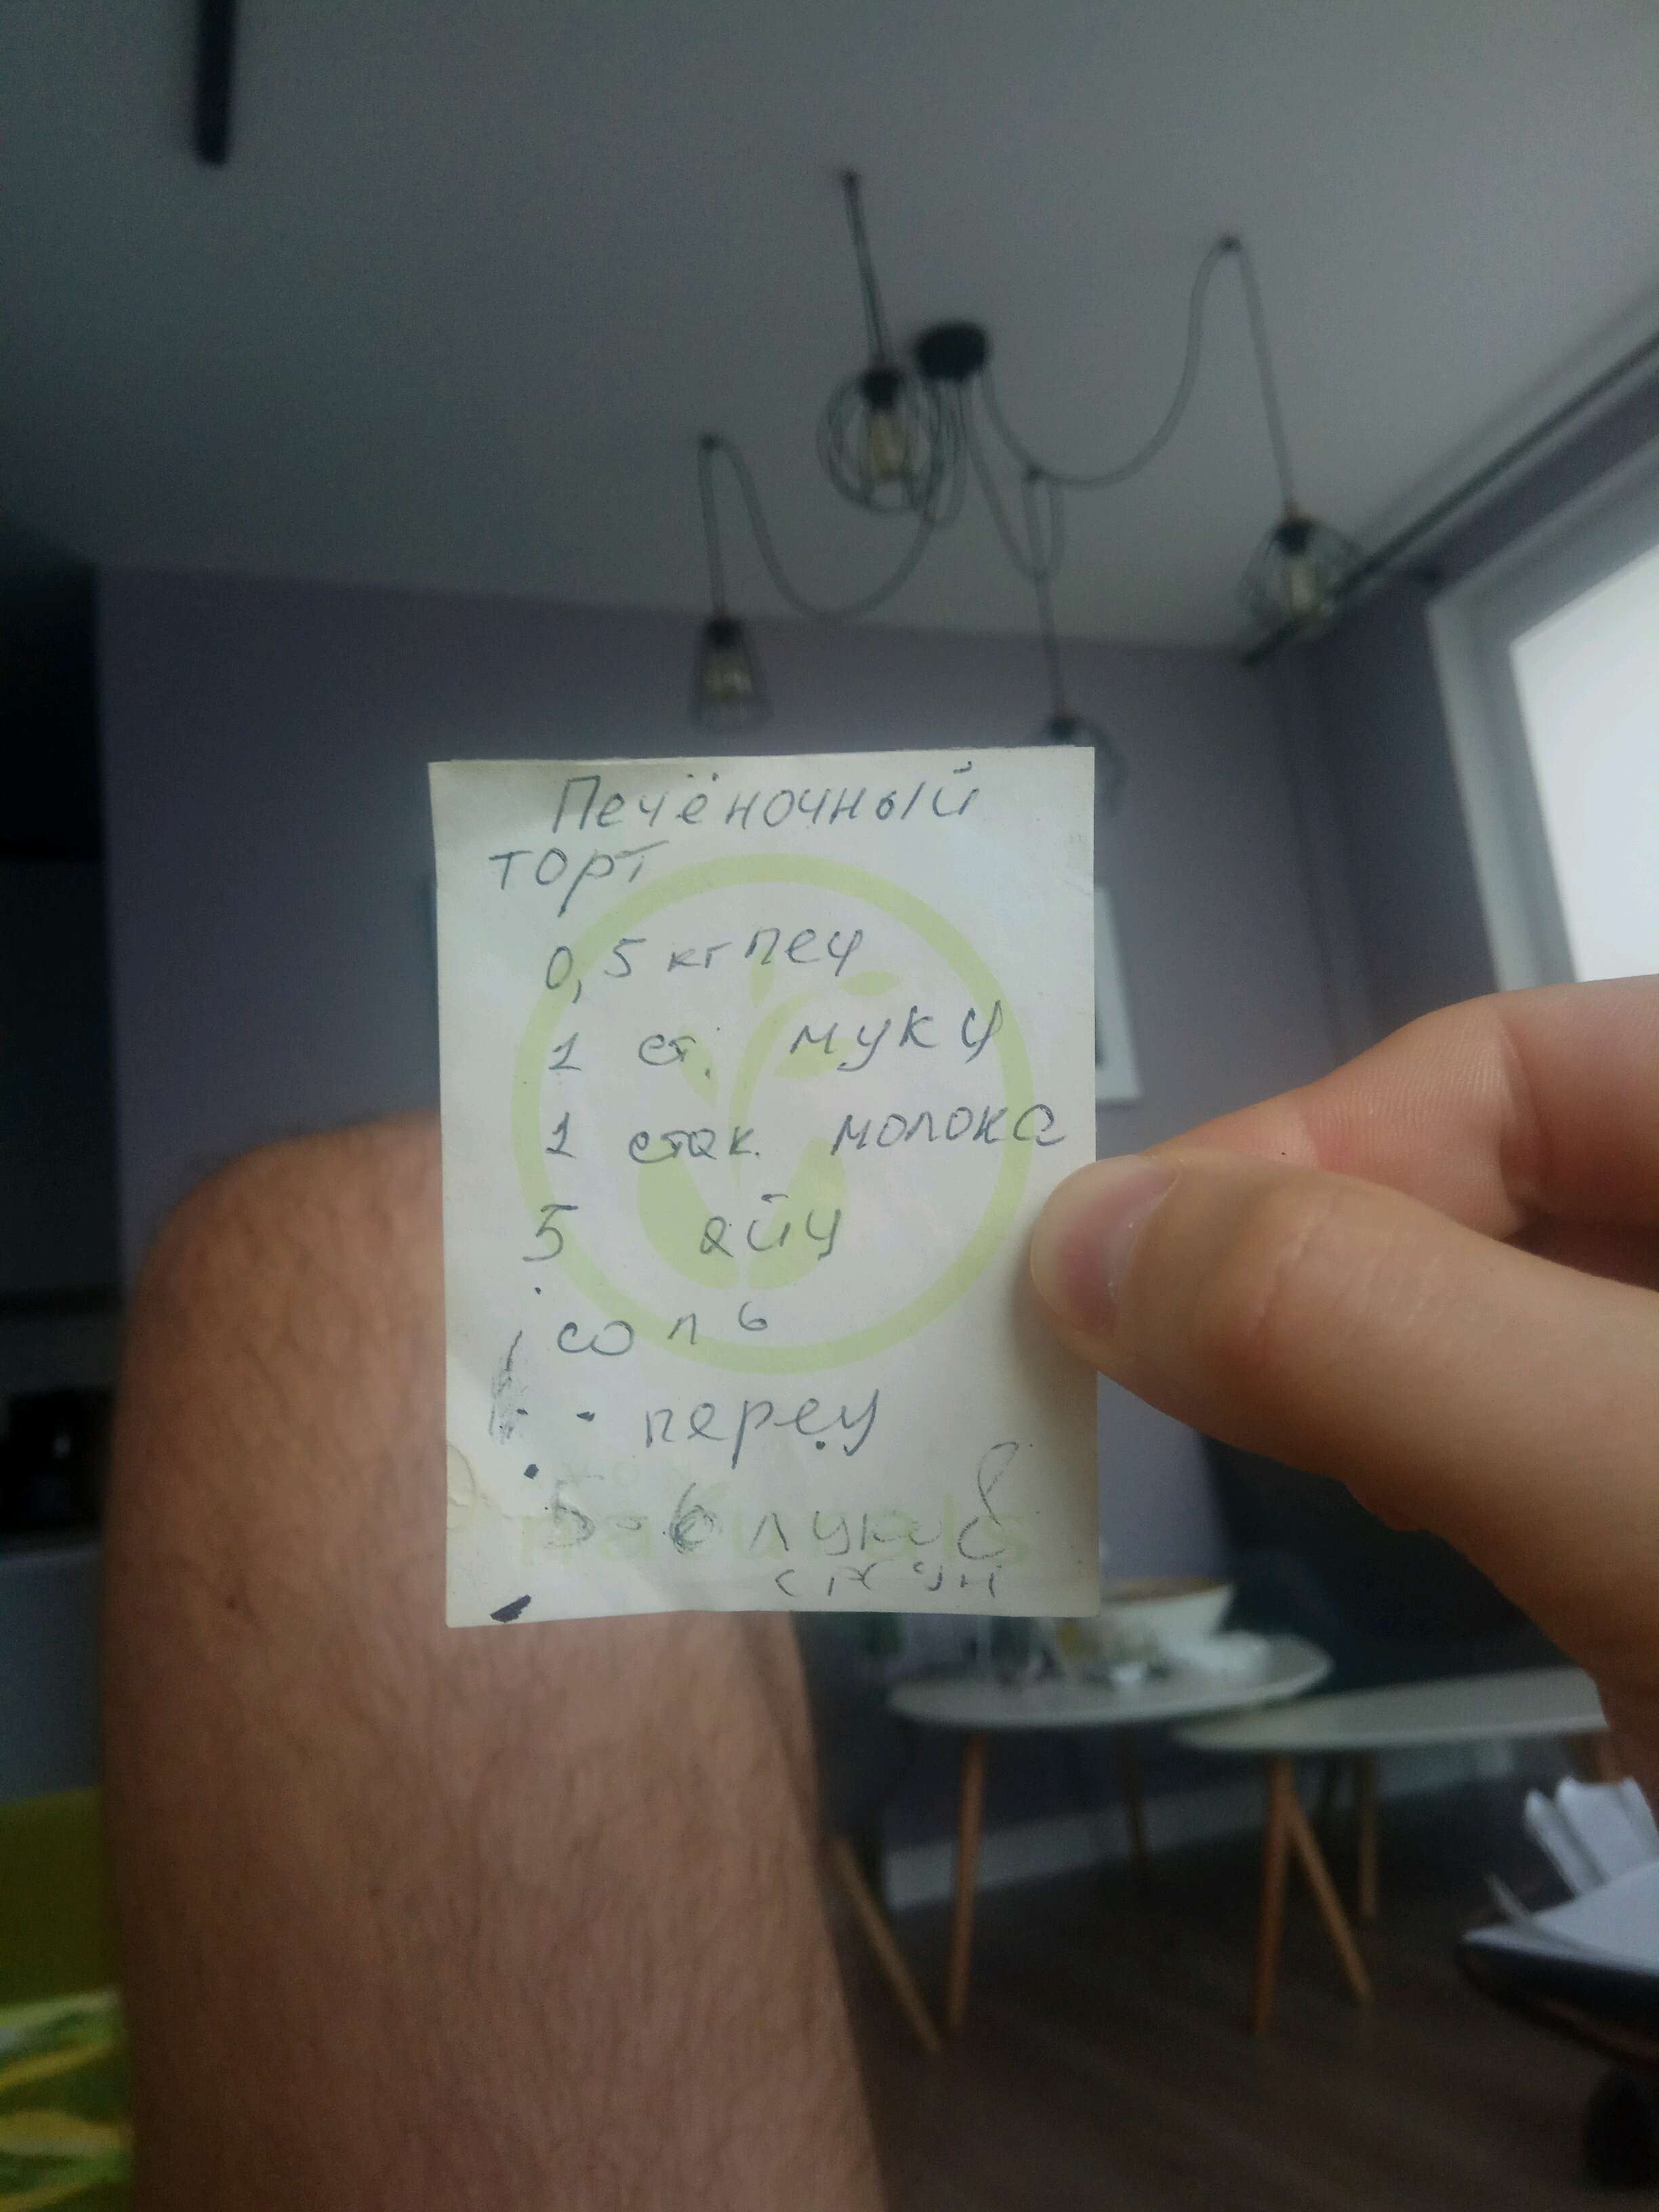 Печёночный
торт
0,5 кг печ
1 ст. муки
1 стак. молока
5 яйц
соль
- перец
5-6 лук